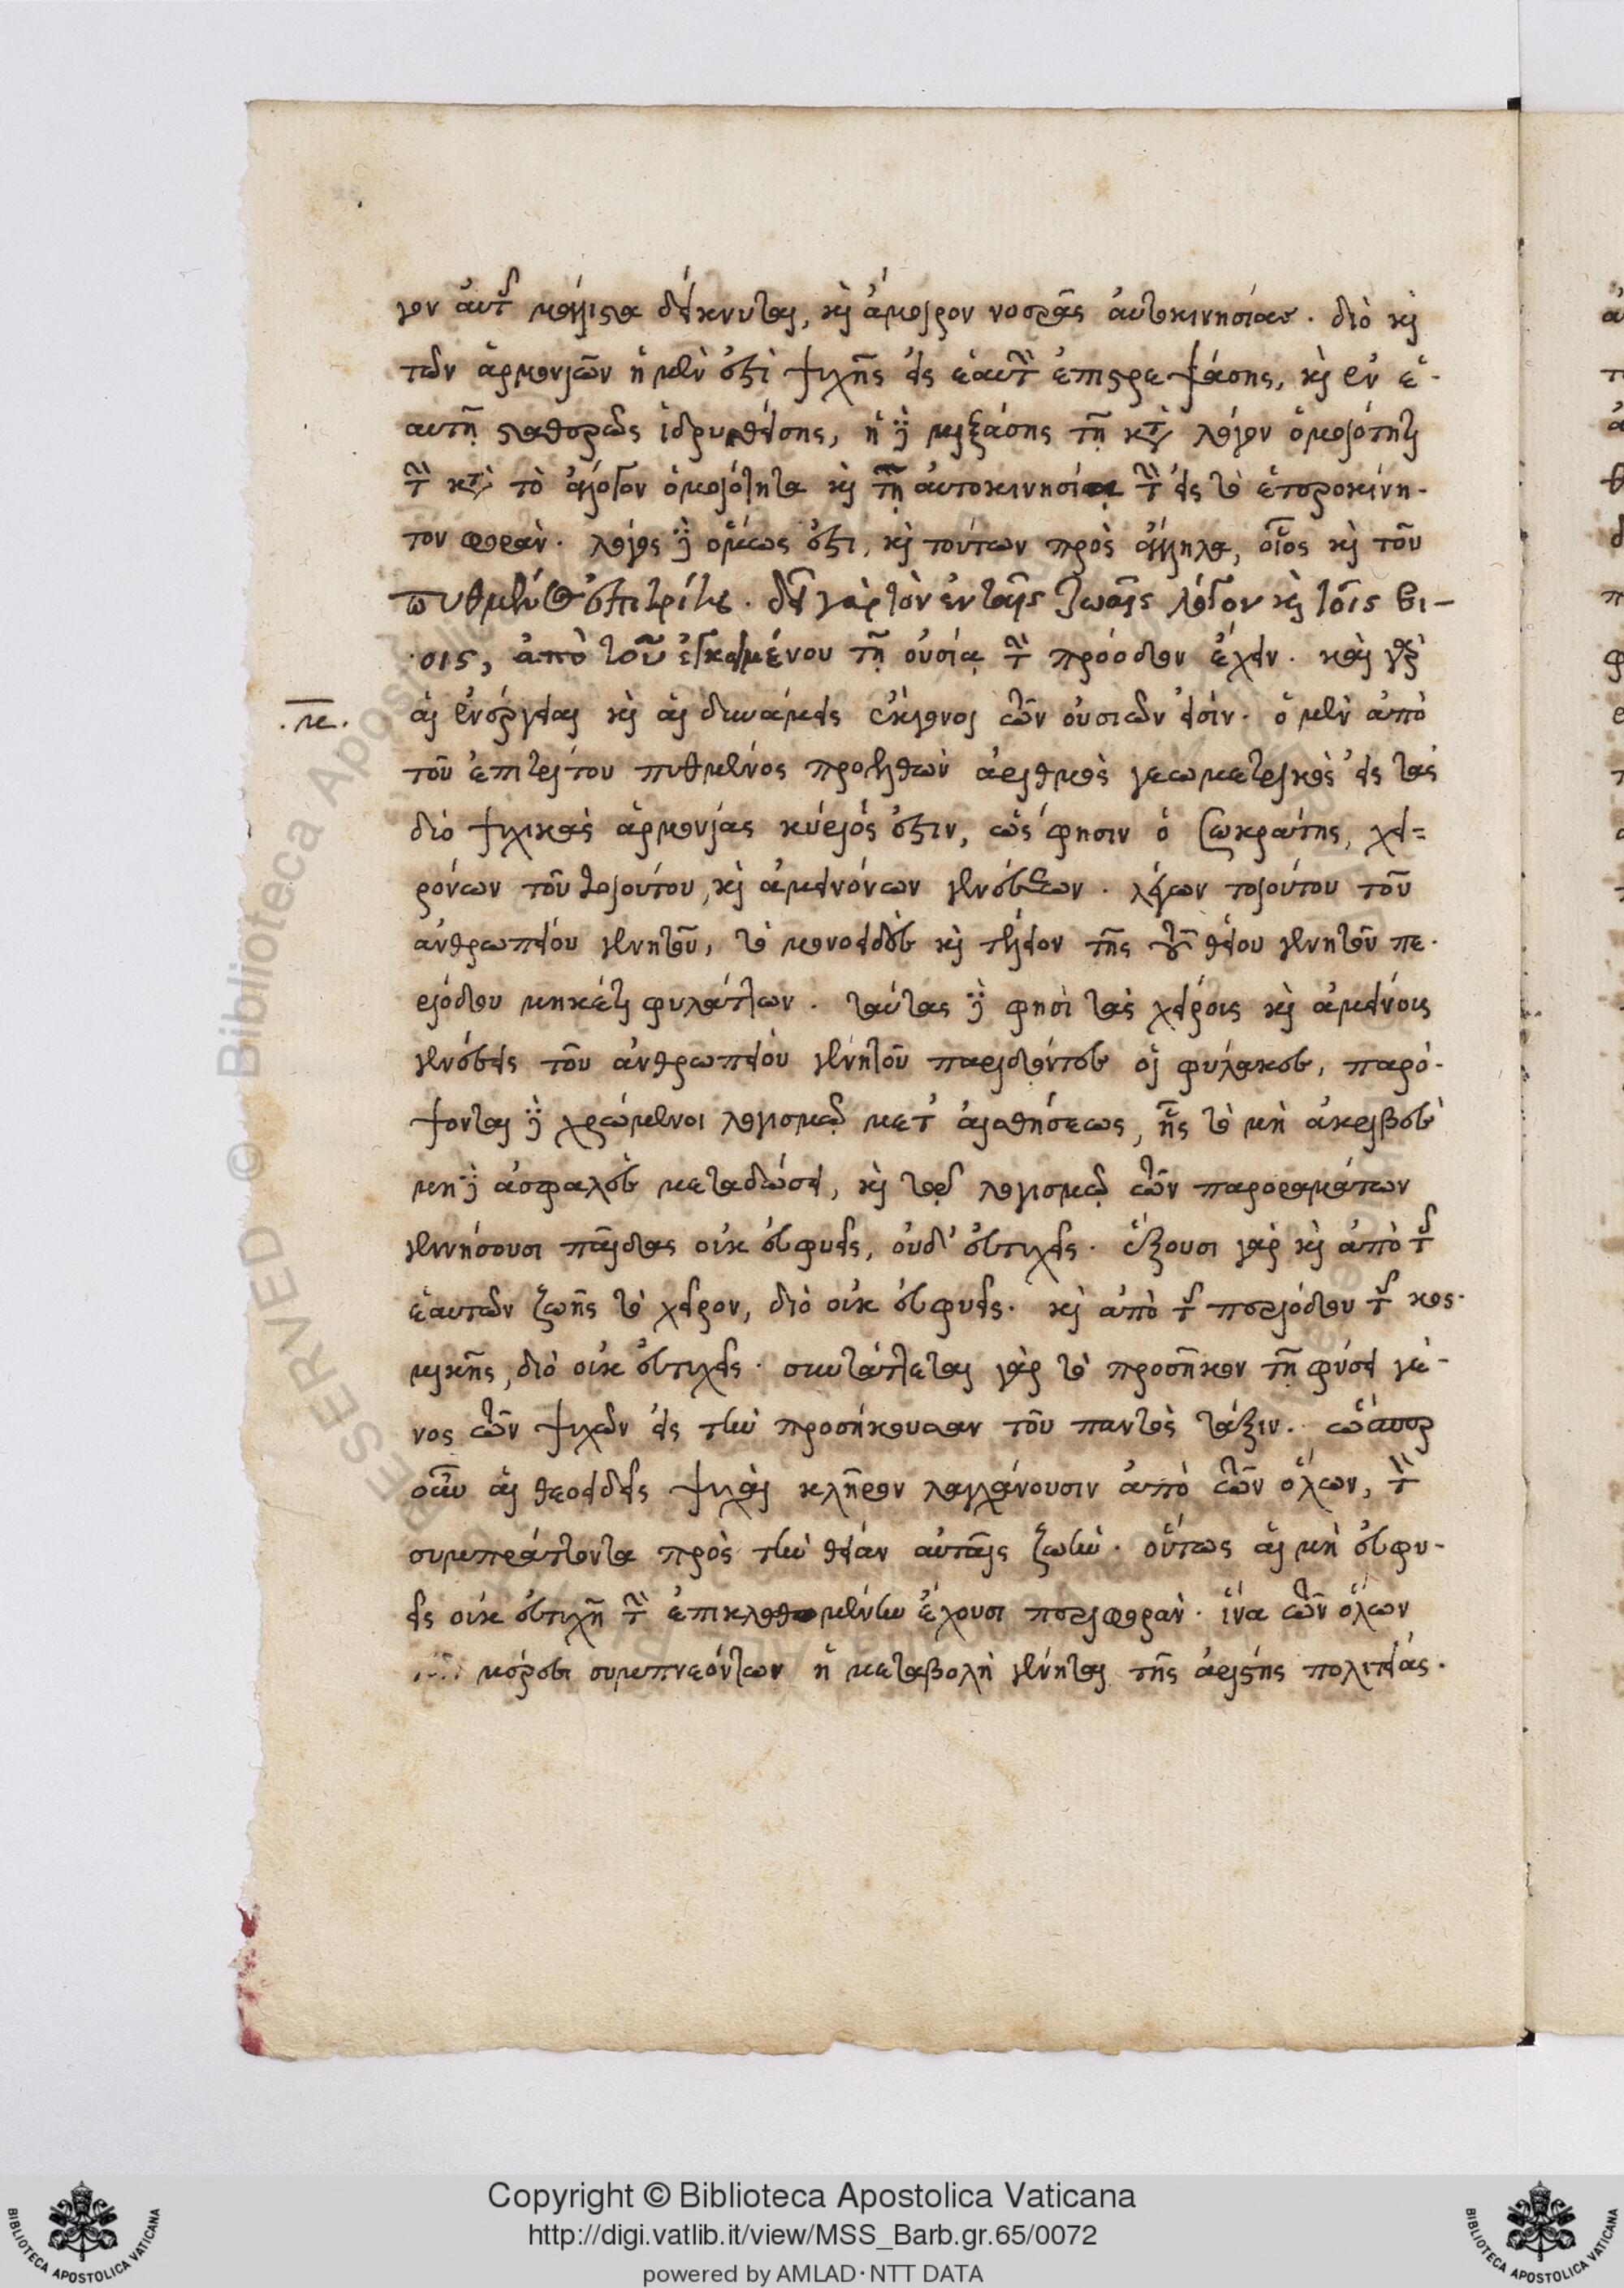 γον αὐτῆς μάλιστα δείκνυται, καὶ ἄμοιρον νοερᾶς αὐτοκινησίας. διὸ καὶ
τῶν ἁρμονιῶν ἡ μὲν ἐστὶ ψυχῆς εἰς ἑαυτὴν ἐπιστρεψάσης, καὶ ἐν ἑ-
αυτῇ σταθερῶς ἱδρυνθείσης, ἡ δὲ μιξάσης τῇ κατὰ λόγον ὁμοιότητι
τὴν κατὰ τὸ ἄλογον ὁμοιότητα καὶ τῇ αὐτοκινησίᾳ τὴν εἰς τὸ ἑτεροκίνη-
τον φορὰν. λόγος δὲ ὅμως ἐστὶ, καὶ τούτων πρὸς ἄλληλα, οἷος καὶ τοῦ
πυθμένος ἐπιτρίτου. δεῖ γὰρ τὸν ἐν ταῖς ζωαῖς λόγον καὶ τοῖς βί-
οις, ἀπὸ τοῦ ἐγκειμένου τῇ οὐσίᾳ τὴν πρόοδον ἔχειν. καὶ γὰρ
.με. αἱ ἐνέργειαι καὶ αἱ δυνάμεις ἔκγονοι τῶν οὐσιῶν εἰσίν. ὁ μὲν ἀπὸ
τοῦ ἐπιτρίτου πυθμένος προελθὼν ἀριθμὸς γεωμετρικὸς εἰς τὰς
δύο ψυχικὰς ἁρμονίας κύριός ἐστιν, ὥς φησιν ὁ Σωκράτης, χει=
ρόνων τοῦ τοιούτου, καὶ ἀμεινόνων γενέσεων. λέγων τοιούτου τοῦ
ἀνθρωπείου γεννητοῦ, τὸ μονοειδὲς καὶ τέλειον τῆς τοῦ θείου γεννητοῦ πε-
ριόδου μηκέτι φυλάττων. ταύτας δὲ φησὶ τὰς χείρους καὶ ἀμείνους
γενέσεις τοῦ ἀνθρωπείου γεννητοῦ παριδόντες οἱ φύλακες, παρό-
ψονται δὲ χρώμενοι λογισμῷ μετ' αἰσθήσεως, ἧς τὸ μὴ ἀκριβὲς
μηδὲ ἀσφαλὲς μεταδώσει, καὶ τῷ λογισμῷ τῶν παροραμάτων
γεννήσουσι παῖδας οὐκ εὐφυεῖς, οὐδ' εὐτυχεῖς. ἕξουσι γὰρ καὶ ἀπὸ τῆς
ἑαυτῶν ζωῆς τὸ χεῖρον, διὸ οὐκ εὐφυεῖς. καὶ ἀπὸ τῆς περιόδου τῆς κοσ-
μικῆς, διὸ οὐκ εὐτυχεῖς. συντάττεται γὰρ τὸ προσῆκον τῇ φύσει γέ-
νος τῶν ψυχῶν εἰς τὴν προσήκουσαν τοῦ παντὸς τάξιν. ὥσπερ
οὖν αἱ θεοειδεῖς ψυχαὶ κλῆρον λαγχάνουσιν ἀπὸ τῶν ὅλων, τὴν
συμπράττοντα πρὸς τὴν θείαν αὐταῖς ζωὴν. οὕτως αἱ μὴ εὐφυ-
εῖς οὐκ εὐτυχῆ τὴν ἐπικλωθομένην ἔχουσι περιφορὰν. ἵνα τῶν ὅλων
μέρεσι συμπνεόντων ἡ μεταβολὴ γένηται τῆς ἀρίστης πολιτείας.
Copyright © Biblioteca Apostolica Vaticana
http://digi.vatlib.it/view/MSS_Barb.gr.65/0072
powered by AMLAD·NTT DATA